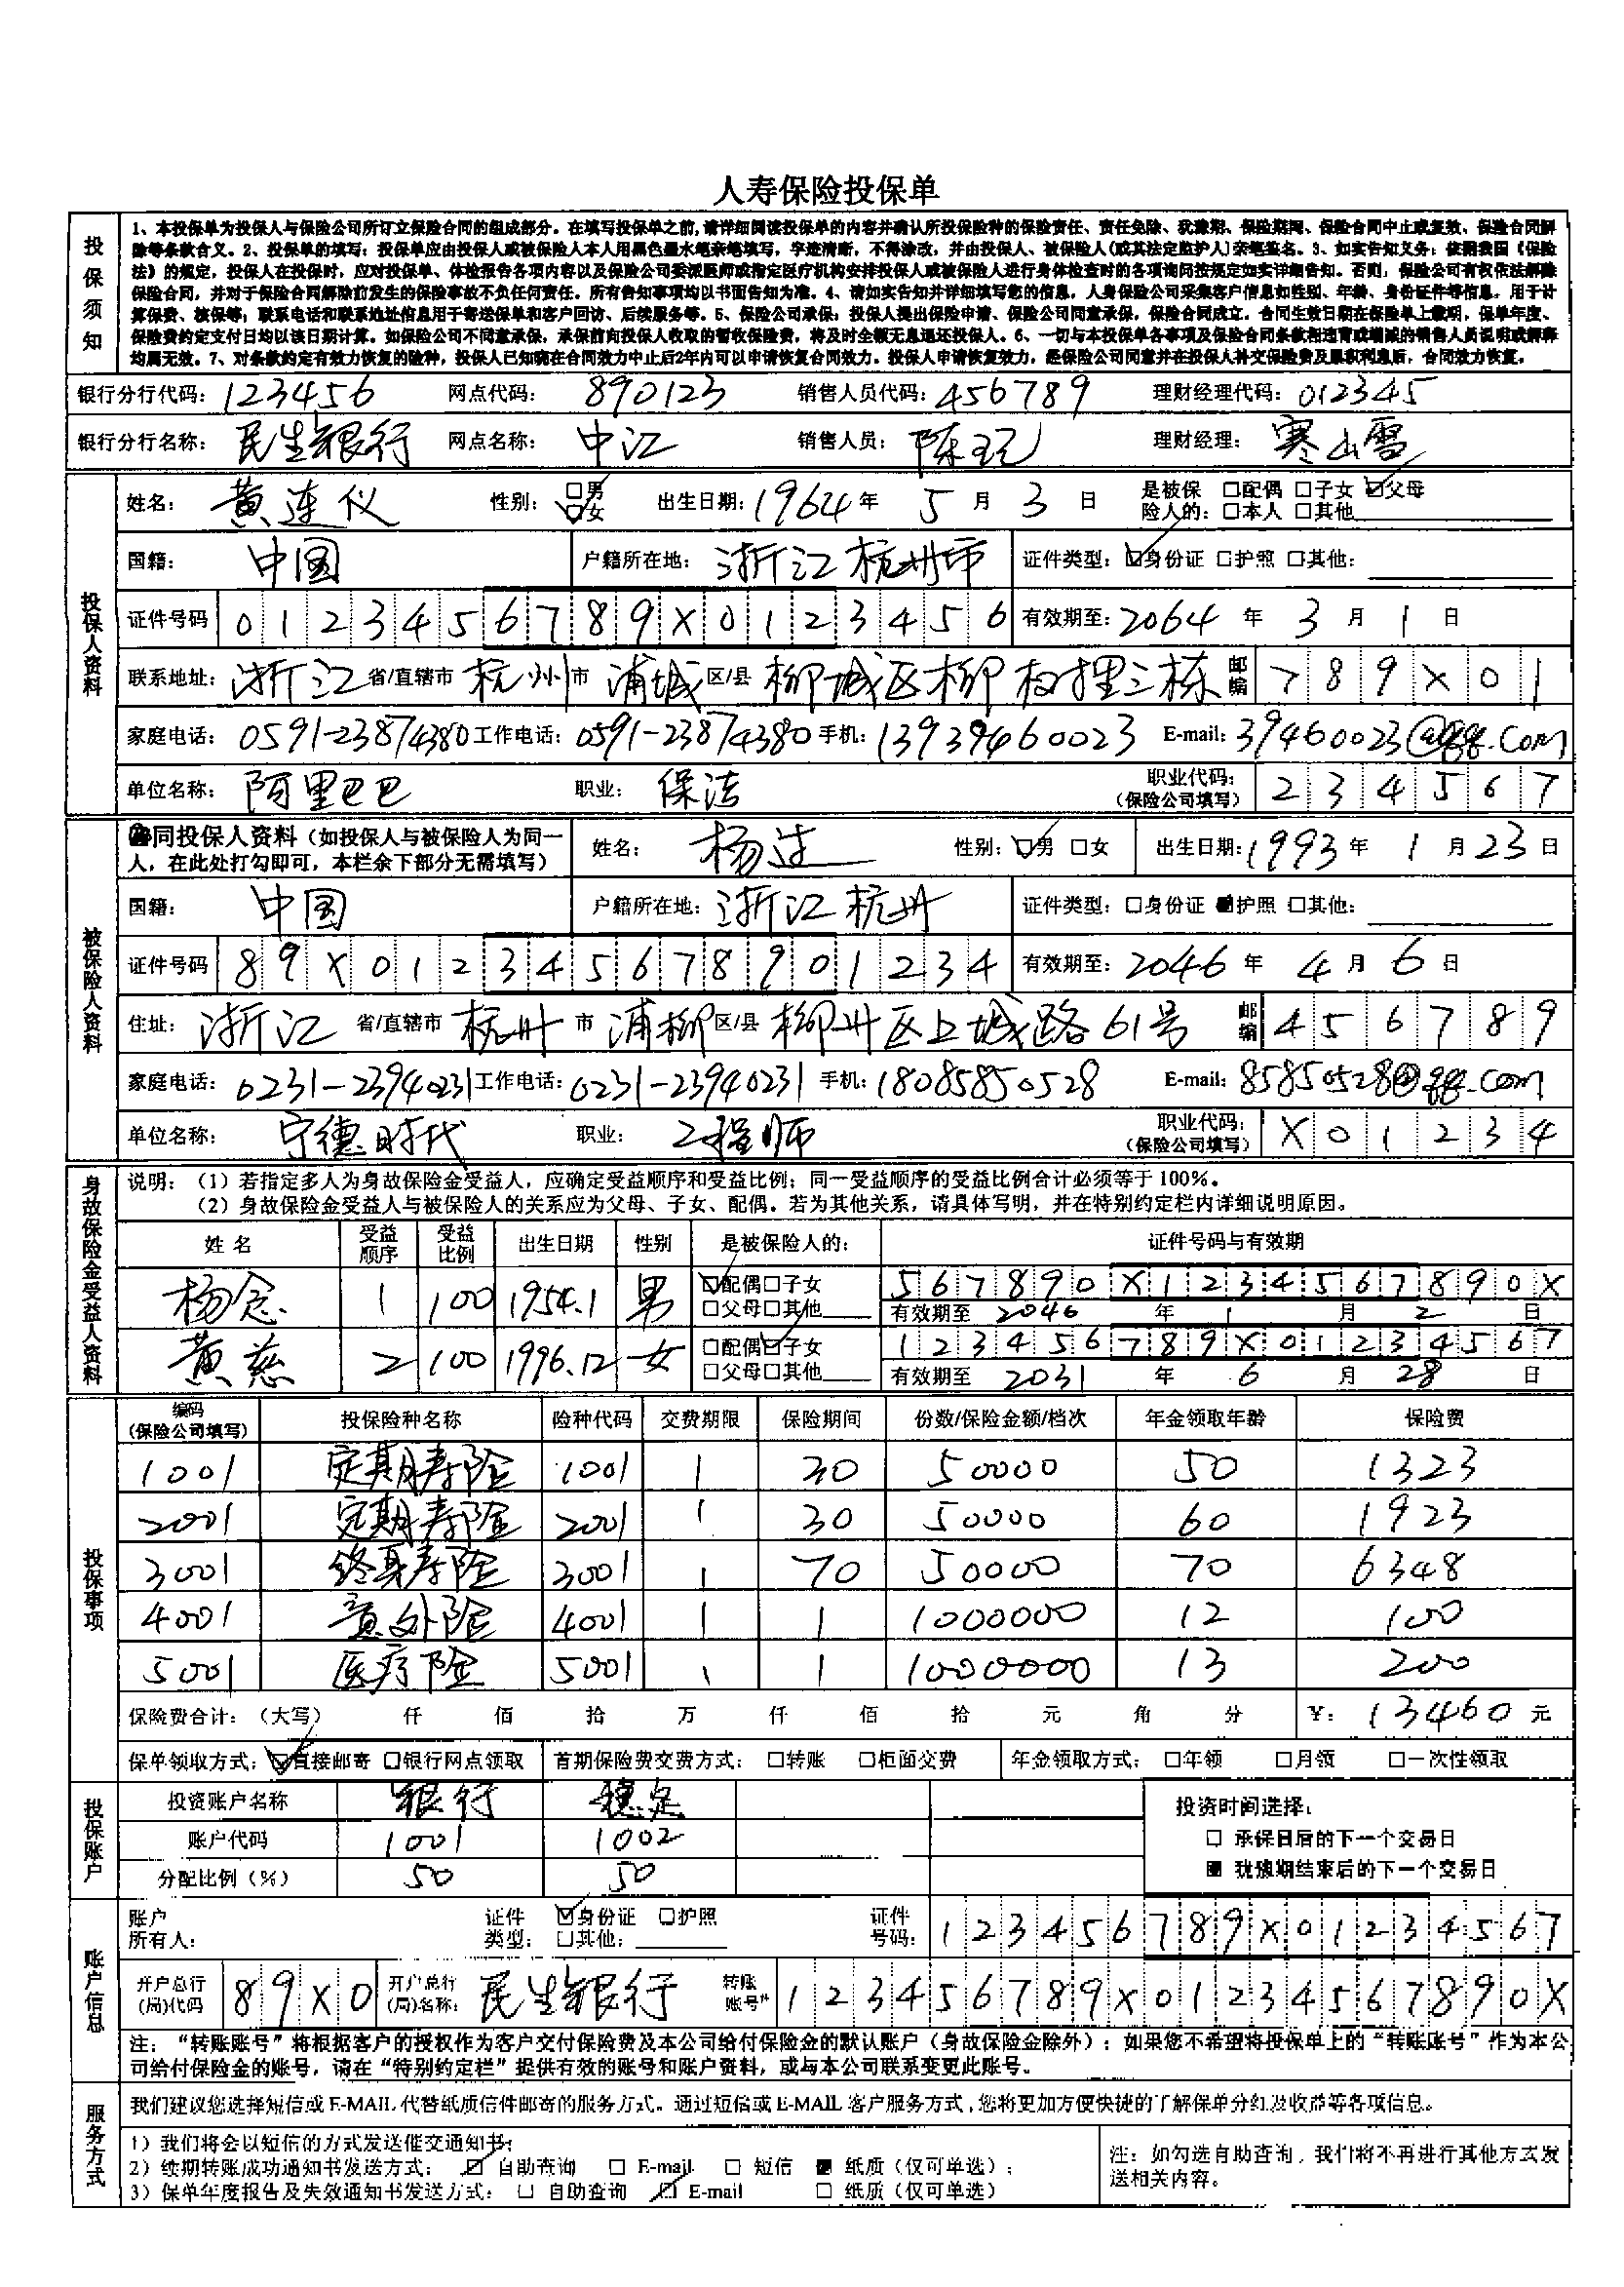 人寿保险投保单
投保须知
1、本投保单为投保人与保险公司所订立保险合同的组成部分。在填写投保单之前,请详细阅读投保单的内容并确认所投保险种的保险责任、责任免除、犹豫期、保险期间、保险合同中止或复效、保险合同解
除等条款含义。2、投保单的填写：投保单应由投保人或被保险人本人用黑色墨水笔亲笔填写，字迹清晰，不得涂改，并由投保人、被保险人(或其法定监护人)亲笔签名。3、如实告知义务：依照我国《保险
法》的规定，投保人在投保时，应对投保单、体检报告各项内容以及保险公司委派医师或指定医疗机构安排投保人或被保险人进行身体检查时的各项询问按规定如实详细告知。否则，保险公司有权依法解除
保险合同，并对于保险合同解除前发生的保险事故不负任何责任。所有告知事项均以书面告知为准。4、请如实告知并详细填写您的信息，人身保险公司采集客户信息如性别、年龄、身份证件等信息，用于计
算保费、核保等；联系电话和联系地址信息用于寄送保单和客户回访、后续服务等。5、保险公司承保：投保人提出保险申请、保险公司同意承保，保险合同成立。合同生效日期在保险单上载明，保单年度、
保险费约定支付日均以该日期计算。如保险公司不同意承保，承保前向投保人收取的暂收保险费，将及时全额无息退还投保人。6、一切与本投保单各事项及保险合同条款相违背或增减的销售人员说明或解释
均属无效。7、对条款约定有效力恢复的险种，投保人已知晓在合同效力中止后2年内可以申请恢复合同效力。投保人申请恢复效力，经保险公司同意并在投保人补交保险费及累积利息后，合同效力恢复。
银行分行代码：123456 网点代码：890123 销售人员代码：456789 理财经理代码：012345
银行分行名称：民生银行 网点名称：中江 销售人员：陈玘 理财经理：寒山雪
投保人资料
姓名：黄连仪 性别：□男 ☑女 出生日期：1964年5月3日 是被保险人的：□配偶 □子女 ☑父母 □本人 □其他
国籍：中国 户籍所在地：浙江杭州市 证件类型：☑身份证 □护照 □其他：
证件号码 0123456789X0123456 有效期至：2064年3月1日
联系地址：浙江省/直辖市 杭州市 浦城区/县 柳城区柳树里三栋 邮编 789X01
家庭电话：0591-23874380 工作电话：0591-23874380 手机：13939460023 E-mail：39460023@qq.com
单位名称：阿里巴巴 职业：保洁 职业代码：（保险公司填写）234567
被保险人资料
同投保人资料（如投保人与被保险人为同一
人，在此处打勾即可，本栏余下部分无需填写）
姓名：杨过 性别：☑男 □女 出生日期：1993年1月23日
国籍：中国 户籍所在地：浙江杭州 证件类型：□身份证 ■护照 □其他：
证件号码 89X012345678901234 有效期至：2046年4月6日
住址：浙江 省/直辖市 杭州 市 浦柳区/县 柳州区上城路61号 邮编 456789
家庭电话：0231-23940231 工作电话：0231-23940231 手机：18085850528 E-mail：85850528@qq.com
单位名称：宁德时代 职业：工程师 职业代码：（保险公司填写）X01234
身故保险金受益人资料
说明：（1）若指定多人为身故保险金受益人，应确定受益顺序和受益比例；同一受益顺序的受益比例合计必须等于100%。
（2）身故保险金受益人与被保险人的关系应为父母、子女、配偶。若为其他关系，请具体写明，并在特别约定栏内详细说明原因。
姓名 受益顺序 受益比例 出生日期 性别 是被保险人的： 证件号码与有效期
杨念 1 100 1954.1 男 ☑配偶□子女 □父母□其他 567890X1234567890X
有效期至 2046 年 1 月 2 日
黄慈 2 100 1996.12 女 □配偶☑子女 □父母□其他 123456789X01234567
有效期至 2031 年 6 月 28 日
投保事项
编码（保险公司填写） 投保险种名称 险种代码 交费期限 保险期间 份数/保险金额/档次 年金领取年龄 保险费
1001 定期寿险 1001 1 30 50000 50 1323
2001 定期寿险 2001 1 30 50000 60 1923
3001 终身寿险 3001 1 70 50000 70 6348
4001 意外险 4001 1 1 1000000 12 100
5001 医疗险 5001 1 1 1000000 13 200
保险费合计：（大写） 仟 佰 拾 万 仟 佰 拾 元 角 分 ¥：13460 元
保单领取方式：☑直接邮寄 □银行网点领取 首期保险费交费方式：□转账 □柜面交费 年金领取方式：□年领 □月领 □一次性领取
投保账户
投资账户名称 银行 稳定
账户代码 1001 1002
分配比例（%） 50 50
投资时间选择：
□ 承保日后的下一个交易日
■ 犹豫期结束后的下一个交易日
账户信息
账户所有人： 证件类型：☑身份证 □护照 □其他： 证件号码：123456789X01234567
开户总行(局)代码 89X0 开户总行(局)名称：民生银行 转账账号 123456789X01234567890X
注：“转账账号”将根据客户的授权作为客户交付保险费及本公司给付保险金的默认账户（身故保险金除外）；如果您不希望将投保单上的“转账账号”作为本公
司给付保险金的账号，请在“特别约定栏”提供有效的账号和账户资料，或与本公司联系变更此账号。
服务方式
我们建议您选择短信或E-MAIL代替纸质信件邮寄的服务方式。通过短信或E-MAIL客户服务方式,您将更加方便快捷的了解保单分红及收益等各项信息。
1）我们将会以短信的方式发送催交通知书；
2）续期转账成功通知书发送方式：☑ 自助查询 □ E-mail □ 短信 ■ 纸质（仅可单选）；
3）保单年度报告及失效通知书发送方式：□ 自助查询 ☑ E-mail □ 纸质（仅可单选）
注：如勾选自助查询，我们将不再进行其他方式发
送相关内容。